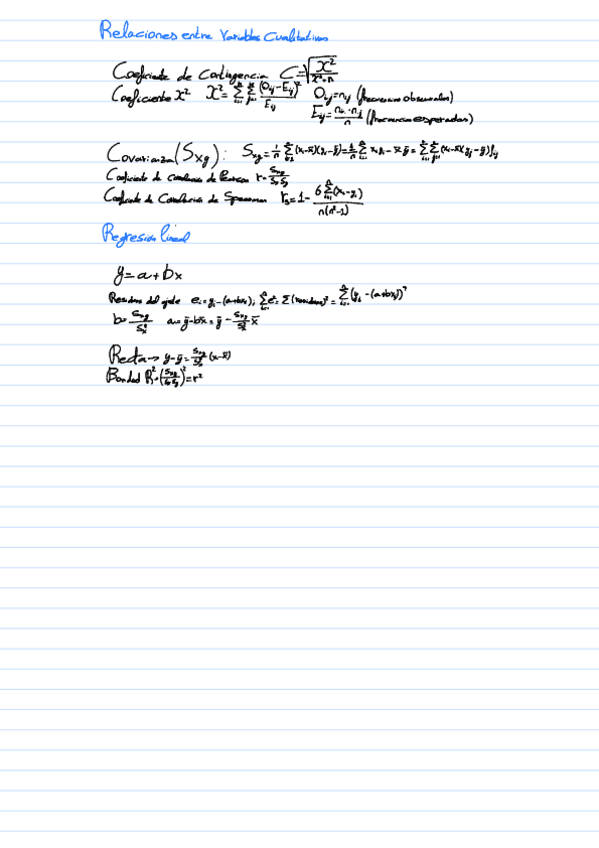 Relaciones entre Variables Cualitativas
Coeficiente de Contingencia C=√(X²/(X²+n))
Coeficiente X² X²= Σᵢ₌₁ Σⱼ₌₁ (Oᵢⱼ-Eᵢⱼ)²/Eᵢⱼ Oᵢⱼ=nᵢⱼ (frecuencias observadas)
Eᵢⱼ= nᵢ.·n.ⱼ/n (frecuencias esperadas)
Covarianza (Sxy): Sxy = 1/n Σ (xᵢ-x̄)(yᵢ-ȳ) = 1/n Σ xᵢyᵢ - x̄ȳ = ΣΣ (xᵢ-x̄)(yⱼ-ȳ)fᵢⱼ
Coeficiente de correlación de Pearson r= Sxy/SxSy
Coeficiente de Correlación de Spearman rs=1- 6Σ(xᵢ-yᵢ)/n(n²-1)
Regresión lineal
y=a+bx
Residuos del ajuste eᵢ=yᵢ-(a+bxᵢ); Σeᵢ²= Σ(residuos)²= Σ(yᵢ-(a+bxᵢ))²
b= Sxy/Sx² a=ȳ-bx̄=ȳ- Sxy/Sx² x̄
Recta→ y-ȳ= Sxy/Sx² (x-x̄)
Bondad R²=(Sxy/SxSy)²=r²